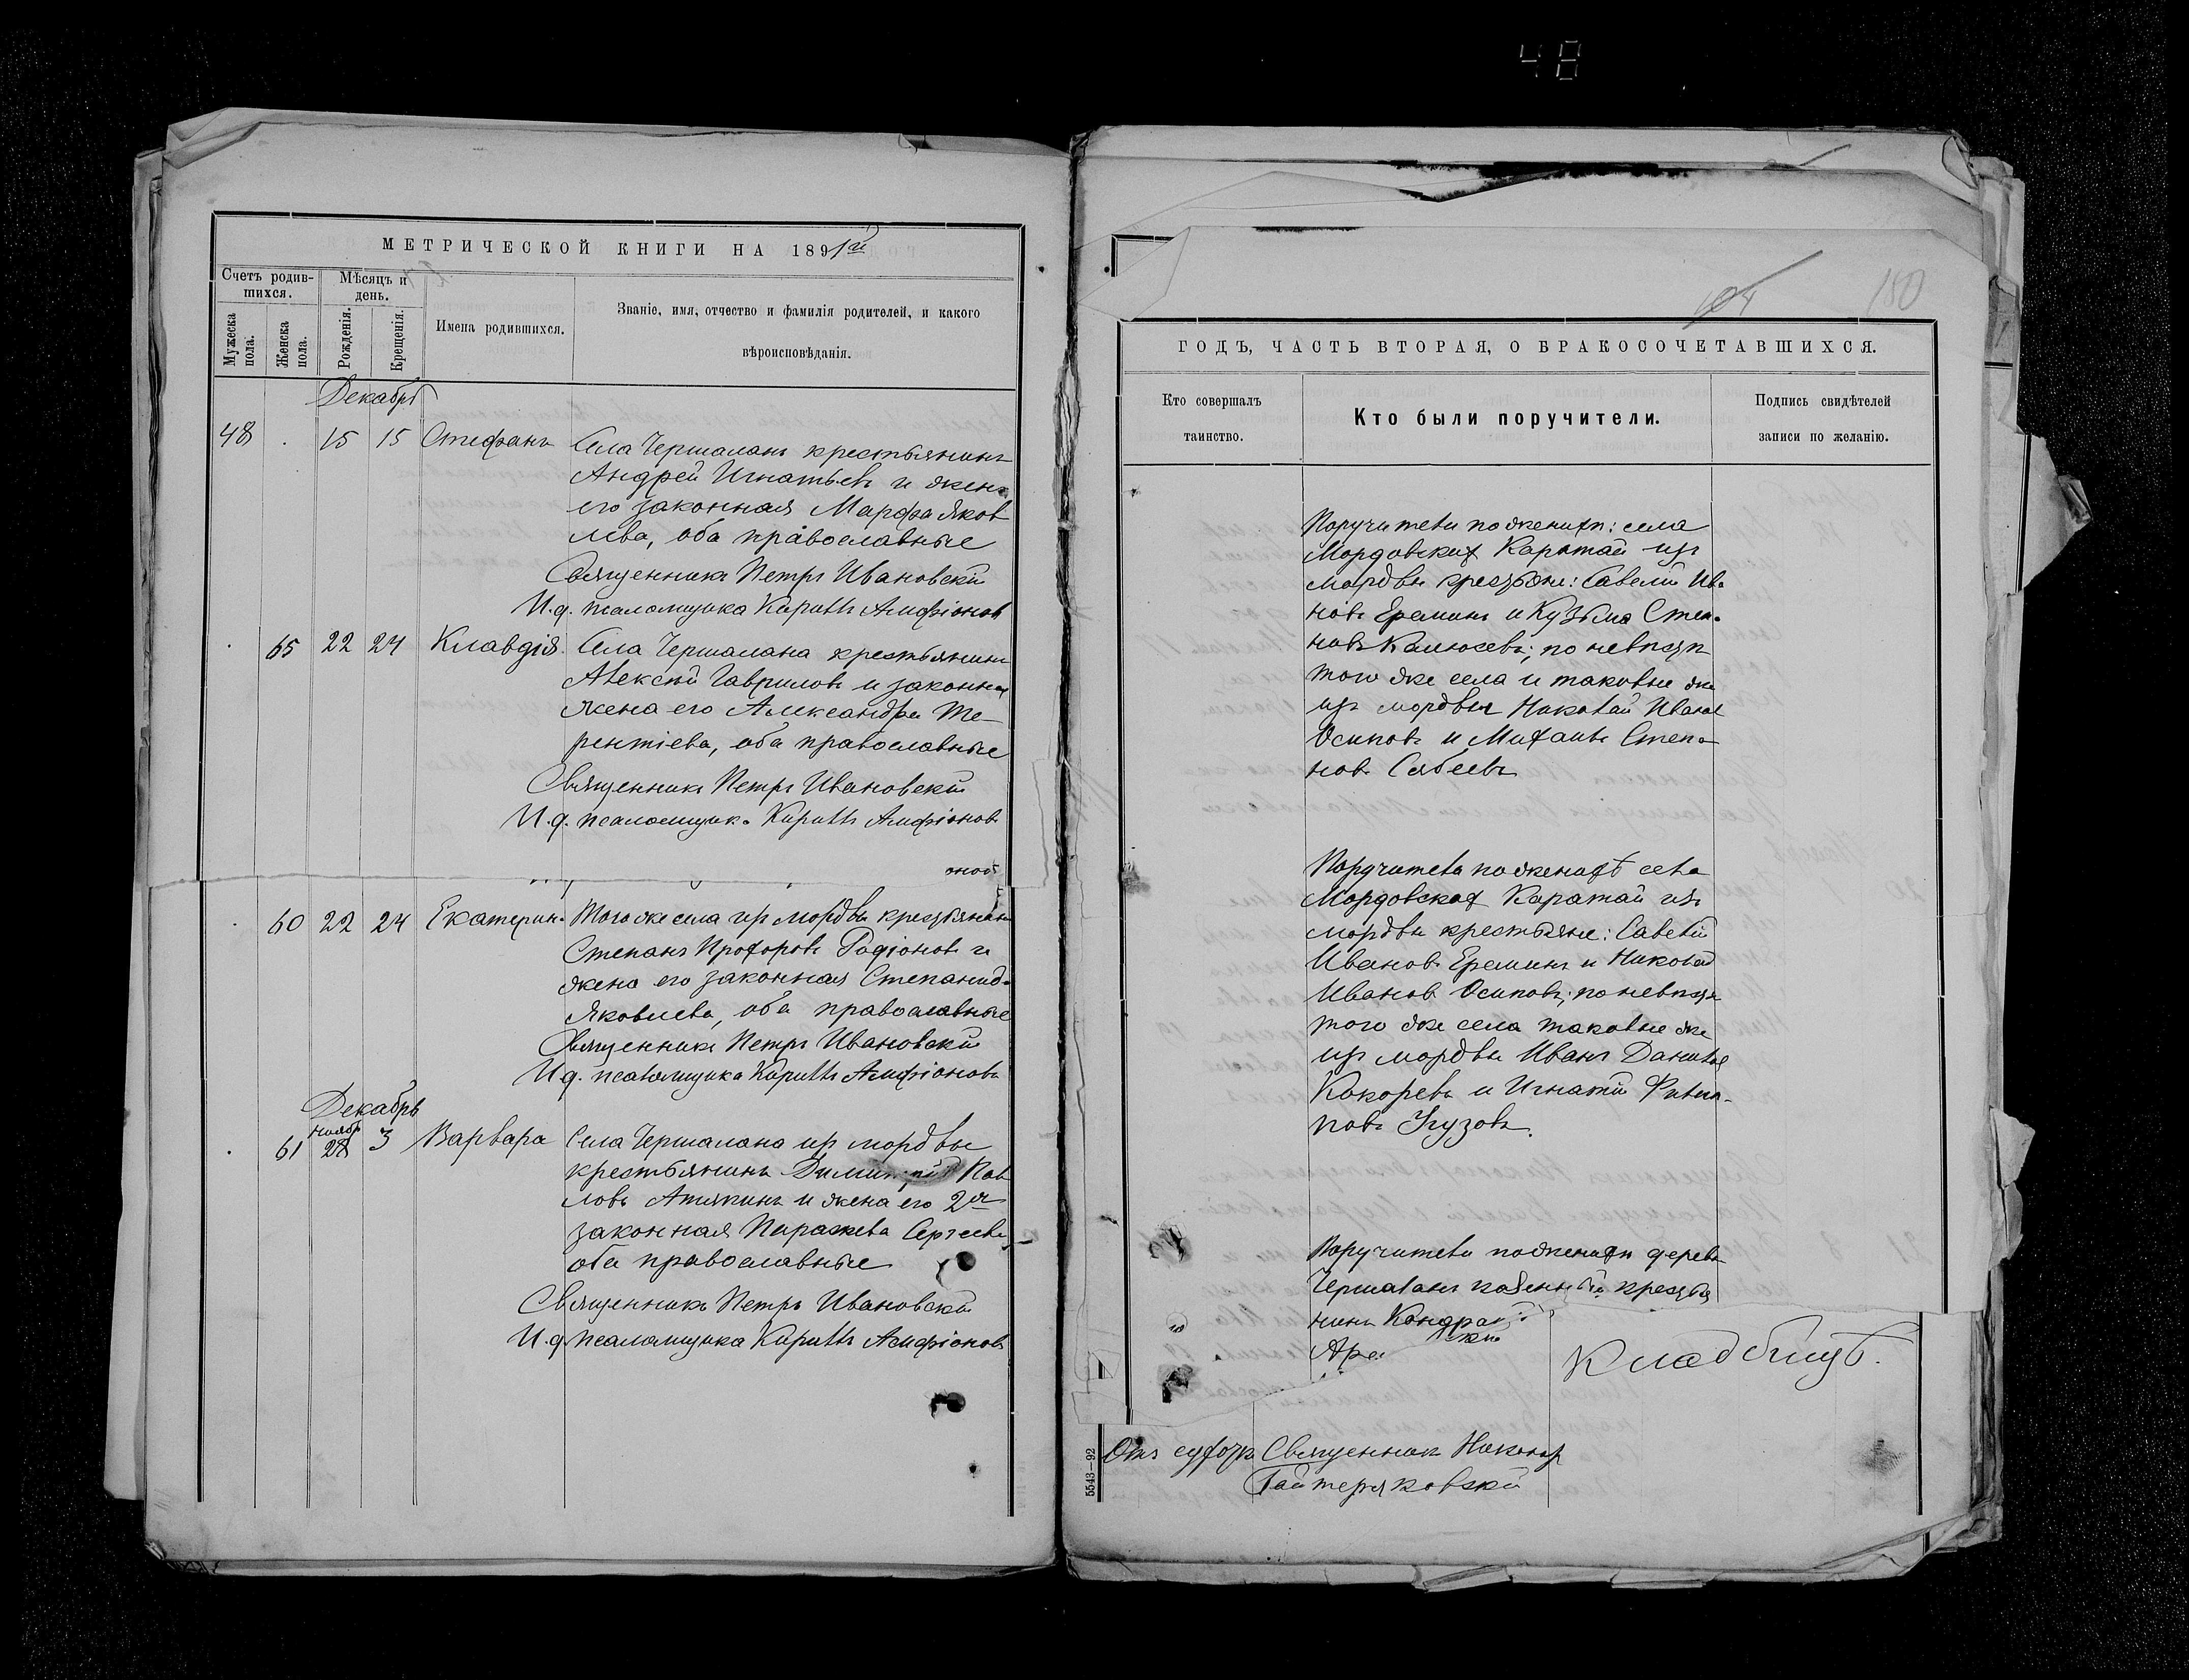 48
МЕТРИЧЕСКОЙ КНИГИ НА 1891й
Счетъ родив-
шихся.
Мѣсяцъ и
день.
Мужеска
пола.
Женска
пола.
Рожденія.
Крещенія.
Имена родившихся.
Званіе, имя, отчество и фамилія родителей, и какого
вѣроисповѣданія.
Декабрь
48 15 15 Стефанъ Села Чершалань крестьянинъ
Андрей Игнатьевъ и жена
его законная Марфа Яков
лева, оба православные
Священникъ Петръ Ивановскій
И.д. псаломщика Кириллъ Алфіоновъ
65 22 24 Клавдія Села Чершалана крестьянинъ
Алексѣй Гавриловъ и законная
жена его Александра Те-
рентіева, оба православные
Священникъ Петръ Ивановскій
И.д. псаломщика Кириллъ Алфіоновъ
оновъ
60 22 24 Екатерин. Того же села изъ мордвы крестьянинъ
Степанъ Прохоровъ Родіоновъ и
жена его законная Степанида
Яковлева, оба православные
Священникъ Петръ Ивановскій
И.д. псаломщика Кириллъ Алфіоновъ
Декабрь
Ноябр
61 28 3 Варвара Села Чершалана из мордвы
крестьянинъ Димитрій Пав
ловъ Атяпинъ и жена его 2я
законная Параскева Сергеева,
оба православные
Священникъ Петръ Ивановскій
И.д. псаломщика Кириллъ Алфіоновъ
104
150
ГОДЪ, ЧАСТЬ ВТОРАЯ, О БРАКОСОЧЕТАВШИХСЯ.
Кто совершалъ
таинство.
Кто были поручители.
Подпись свидѣтелей
записи по желанію.
Поручители по женихѣ: села
Мордовских Каратай изъ
мордвы крестьяне: Савелій Ива
новъ Ереминъ и Кузьма Степа
новъ; по невѣстѣ
того же села и таковые же
изъ мордвы Николай Иванов
Осиповъ и Михаилъ Степа
новъ
Поручители по женихѣ села
Мордовских Каратай изъ
мордвы крестьяне: Савелій
Ивановъ Ереминъ и Николай
Иванов Осиповъ; по невѣстѣ
того же села таковые же
изъ мордвы Иванъ Данилов
Кокоревъ и Игнатій Филип-
повъ Угузовъ.
Поручители по женихѣ дерев
Чершалань крестья
нинъ Кондра
Аре
Кладбищѣ.
Священникъ Никаноръ
Гайтеряковскій
5543—92